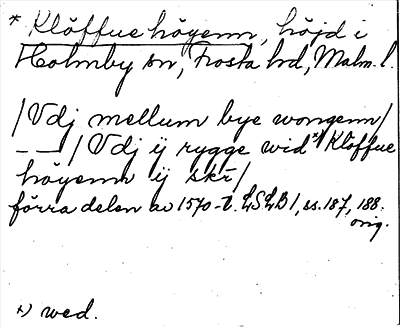 * Klöffue höyenn, höjd i
Holmby sn, Frosta hd, Malm. l.
/Vdj mellum bye wongenn/
— — / Vdj ij rygge wid *) Klöffue
höyenn ij skr/
förra delen av 1570-t. LSLB 1, ss. 187, 188.
orig.
*) wed.